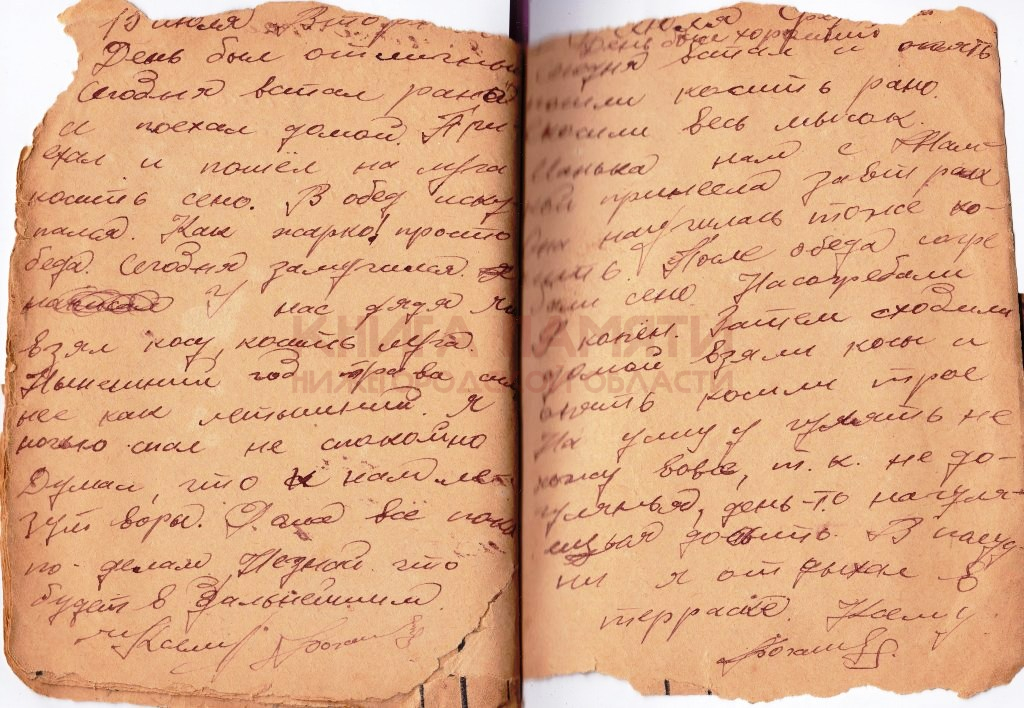 июля
День был отличный
Сегодня встал рано
и поехал домой. При-
ехал и пошёл на луга
косить сено. В обед иску-
пался. Как жарко! просто
беда. Сегодня замучился.
У нас дядя
взял косу, косить луга.
Нынешний год трава
нее как летошний. Я
ночью спал не спокойно
Думал, что к нам ле-
зут воры. Дома всё
по-делам
будет в дальнейшем.
День был хороший
Сегодня встал и опять
пошли косить рано.
Косили весь мысок.
Манька нам с
принесла завтрак
научилась тоже ко-
сить. После обеда согре
бали сено Насогребали
9 копён. Затем сходили
домой взяли косы и
опять косили трое
На улицу гулять не
хожу вовсе, т.к. не до-
гулянья, день-то нагуля-
ешься досыть. В
я отдыхал в
террасе.
КНИГА ПАМЯТИ
НИЖЕГОРОДСКОЙ ОБЛАСТИ